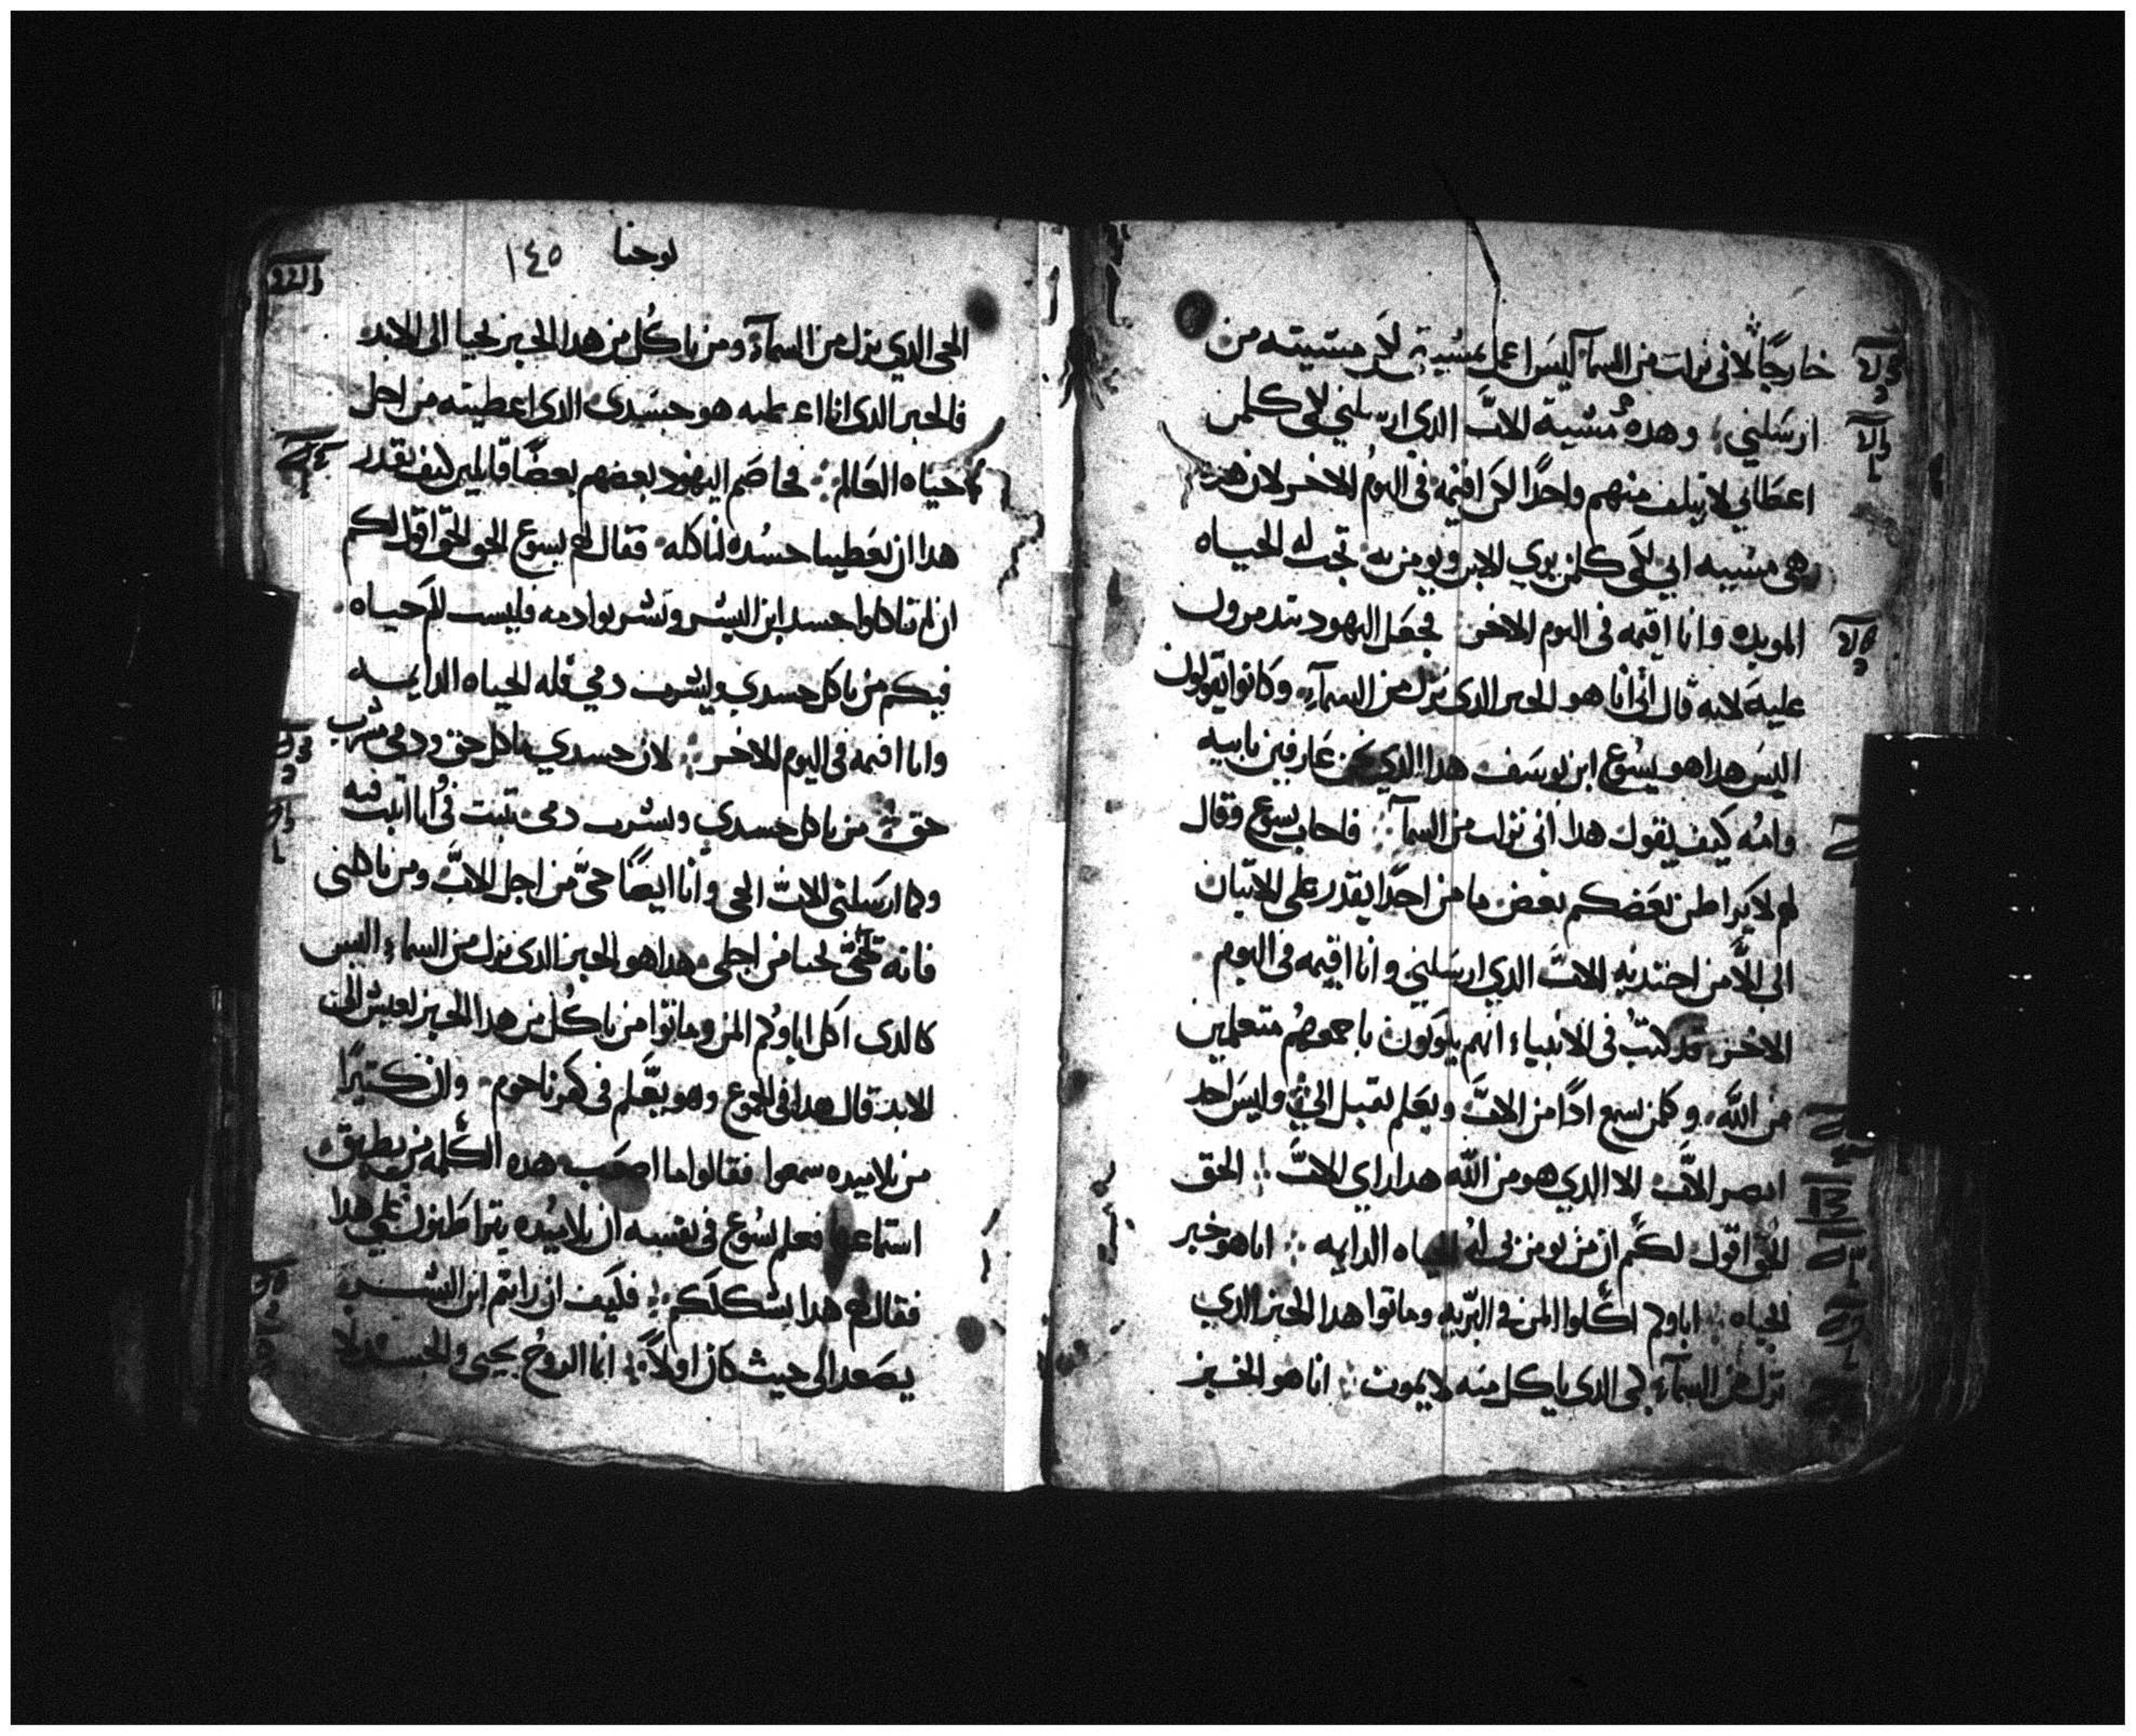 خارجًا لانى نزلت من السمآ ليس اعمل مشيتى لكن مشيته من
ارسلني وهده مشية الاب الدي ارسلني لكى كلمن
اعطاني لا يتلف منهم واحدًا لكن اقيمه فى اليوم الاخر لان هده
هى مشييه ابي لكى كلمن يري الابن ويومن به تجب له الحياه
الموبده وانا اقيمه فى اليوم الاخر فجعل اليهود يتدمرون
عليه لانه قال انى انا هو الخبر الدى نزل من السمآء وكانوا يقولون
اليس هدا هو يسوع ابن يوسف هدا الدي نحن عارفين بابيه
وامه كيف يقول هدا انى نزلت من السمآ فاجاب يسوع وقال
لهم لا يراطن بعضكم بعض ما من احدًا يقدر على الاتيان
الى الا من اجتدبه الاب الدي ارسلني وانا اقيمه فى اليوم
الاخر قد كتب فى الانبياء انهم يكونون باجمعهم متعلمين
من الله وكلمن سمع ادًا من الاب وتعلم يقبل الي وليس احد
ابصر الاب الا الدي هو من الله هدا راي الاب الحق
الحق اقول لكم ان من يومن بى له الحياه الدايمه انا هو خبز
الحياه اباوكم اكلوا المن فى البريه وماتوا هدا الخبز الدي
نزل من السمآء لكى الدى ياكل منه لا يموت انا هو الخبز
يوحنا ١٤٥
الحى الدي نزل من السمآء ومن ياكل من هدا الخبز يحيا الى الابد
فالخبز الدى انا اعطيه هو جسدى الدى اعطيته من اجل
حياه العالم فخاصم اليهود بعضهم بعضًا قايلين كيف يقدر
هدا ان يعطينا جسده لناكله فقال لهم يسوع الحق الحق اقول لكم
ان لم تاكلوا جسد ابن البشر وتشربوا دمه فليست لكم حياه
فيكم من ياكل جسدي ويشرب دمي فله الحياه الدايمه
وانا اقيمه فى اليوم الاخر لان جسدي ماكل حق ودمى مشرب
حق من ياكل جسدي ويشرب دمى يتبت فى وانا اتبت فيه
وكما ارسلنى الاب الحى وانا ايضًا حى من اجل الاب ومن ياكلنى
فانه يحيا من اجلى هدا هو الخبز الدى نزل من السماء ليس
كالدى اكل اباوكم المن وماتوا من ياكل من هدا الخبز يعيش الى
الابد قال هدا فى المجمع وهو يعلم فى كفرناحوم وان كتيرًا
من تلاميده سمعوا فقالوا ما اصعب هده الكلمه من يطيق
استماعها فعلم يسوع فى نفسه ان تلاميده يتراطنون على هدا
فقال لهم هدا يشككم فكيف ان رايتم ابن البشر
يصعد الى حيث كان اولاً انما الروح يحيى والجسد لا